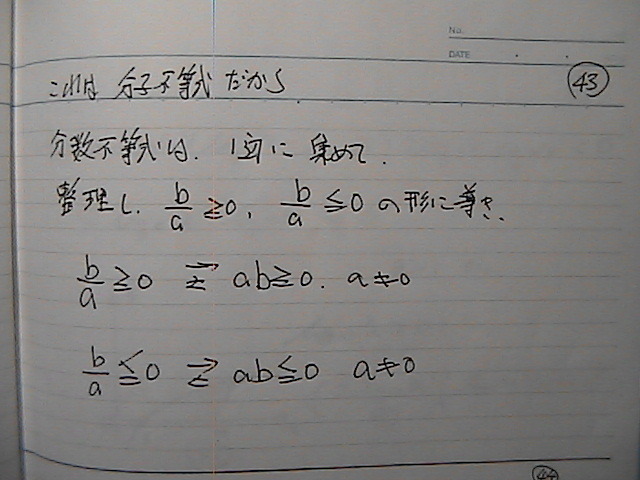 No.
DATE ・ ・
これは 分子不等式 だから ㊸
分数不等式は、1辺に 集めて、
整理し、b/a ≧0、b/a ≦0 の形に導き、
b/a ≧0 ⇄ ab≧0. a≠0
b/a ≦0 ⇄ ab≦0 a≠0
㊹